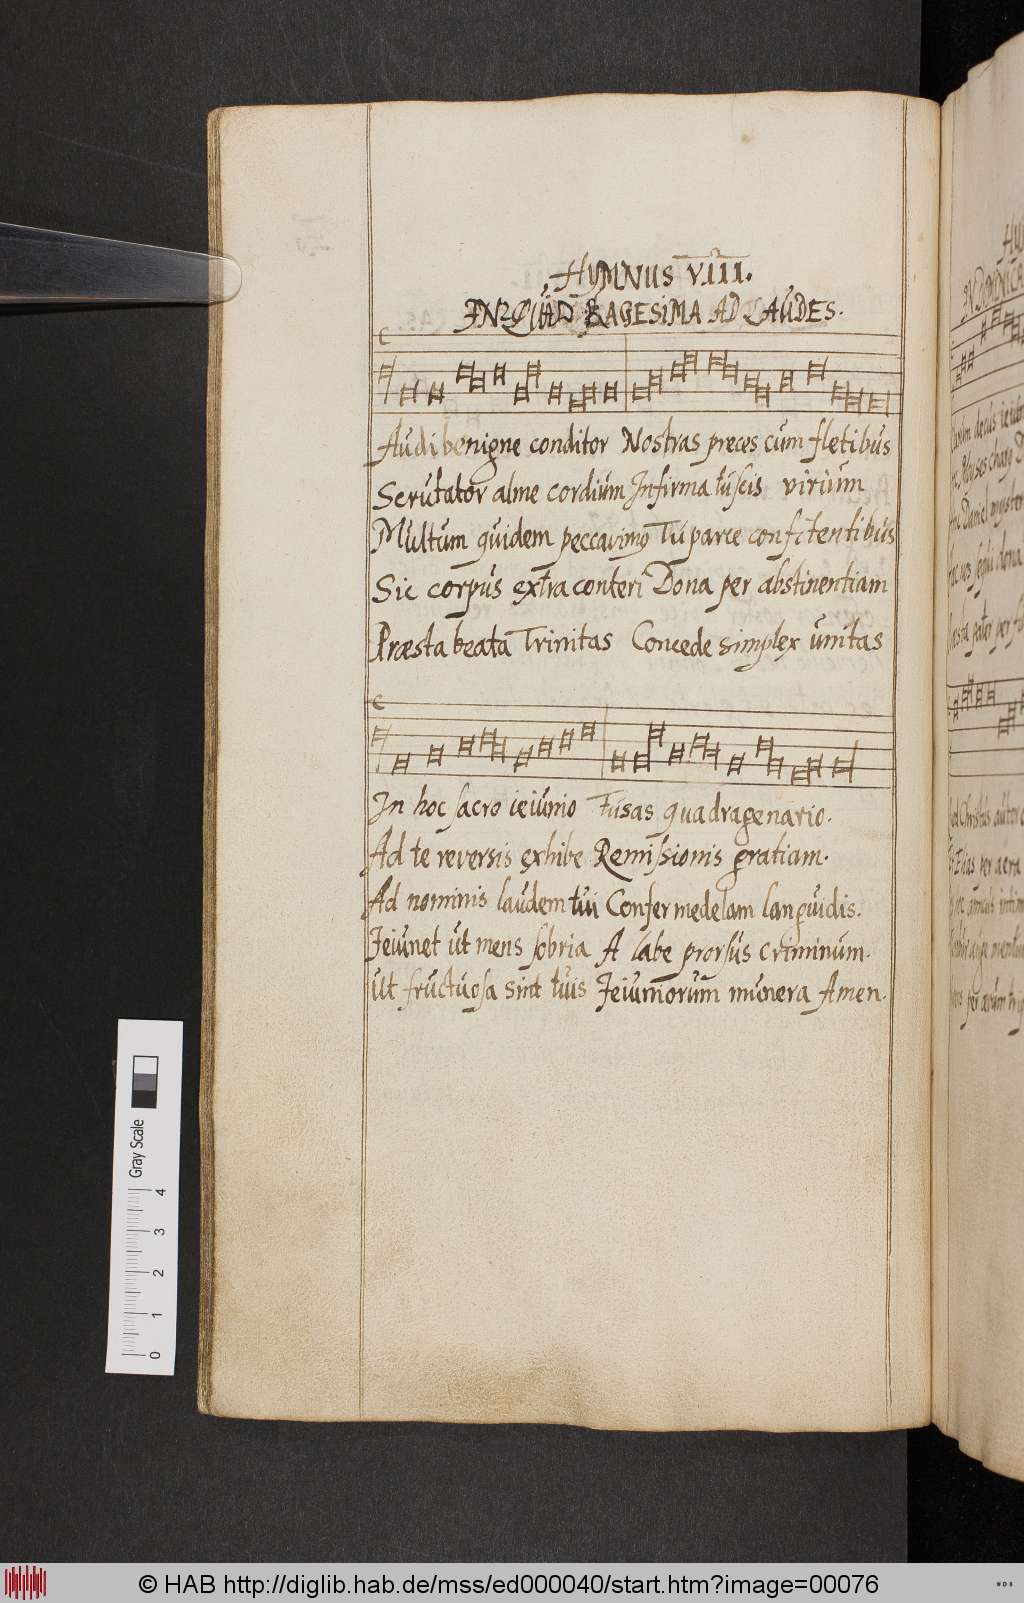 HYMNUS VIII.
IN QUADRAGESIMA AD LAUDES.
C
Audi benigne conditor Nostras preces cum fletibus
Scrutator alme cordium Infirma tu scis virium
Multum quidem peccavimꝰ Tu parce confitentibus
Sic corpus extra conteri Dona per abstinentiam
Præsta beata Trinitas Concede simplex unitas
C
In hoc sacro ieiunio Fusas quadragenario.
Ad te reversis exhibe Remissionis gratiam.
Ad nominis laudem tui Confer medelam languidis.
Jeiunet ut mens sobria A labe prorsus criminum.
Ut fructuosa sint tuis Jeiuniorum munera Amen.
Gray Scale
0 1 2 3 4
© HAB http://diglib.hab.de/mss/ed000040/start.htm?image=00076